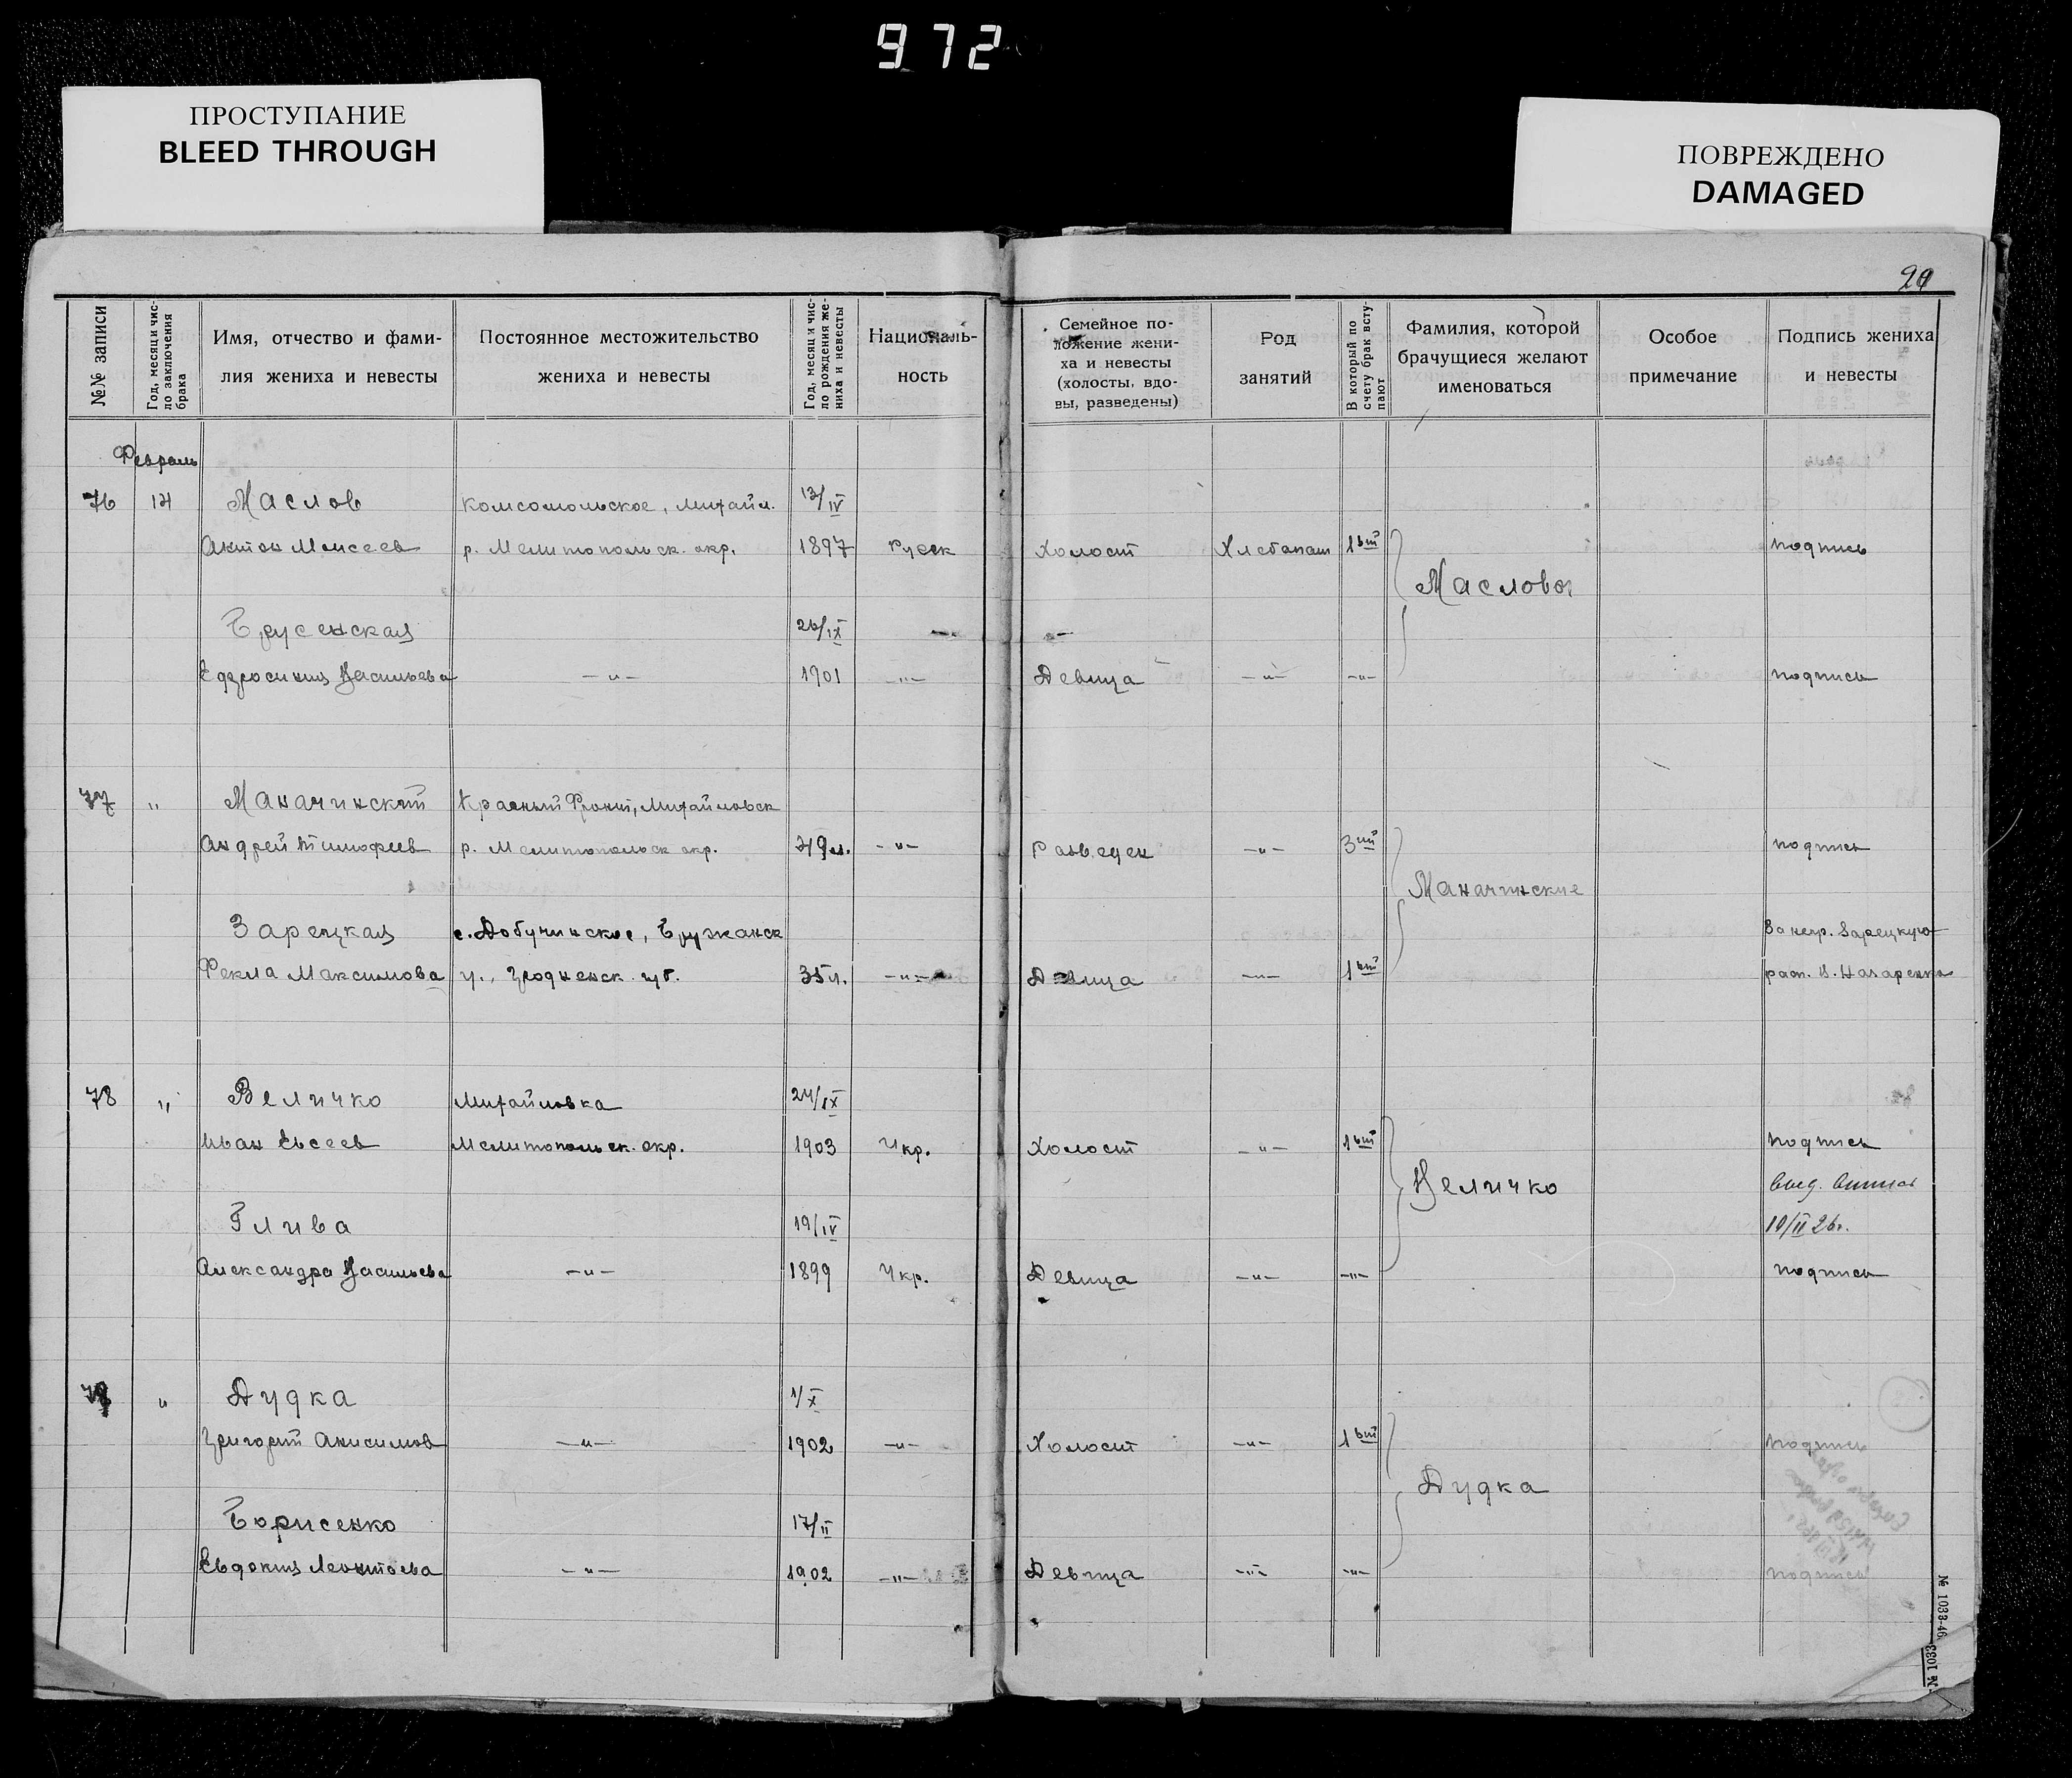 972
ПРОСТУПАНИЕ
BLEED THROUGH
ПОВРЕЖДЕНО
DAMAGED
№№ записи
Год, месяц и чис-
ло заключения
брака
Имя, отчество и фами-
лия жениха и невесты
Постоянное местожительство
жениха и невесты
Год, месяц и чис-
ло рождения же-
ниха и невесты
Националь-
ность
Семейное по-
ложение жени-
ха и невесты
(холосты, вдо-
вы, разведены)
Род
занятий
В который по
счету брак всту-
пают
Фамилия, которой
брачущиеся желают
именоваться
Особое
примечание
Подпись жениха
и невесты
Февраль
76 14 Маслов Комсомольское, Михайл. 13/IV
Антон Моисеев р. Мелитопольск. окр. 1897 Русск Холост Хлебопаш 1ый подпись
Масловы
Брусенская 26/IX
Ефросиния Васильева —„— 1901 —„— Девица —„— —„— подпись
77 „ Маначинский Красный Фронт, Михайловск
Андрей Тимофеев р. Мелитопольск окр. 49 л. —„— Разведен —„— 3ий подпись
Маначинские
Зарецкая с. Добучинское, Пружанск За негр. Зарецкую
Фекла Максимова у., Гродненск. губ. 35 л. —„— Девица —„— 1ый расп. Назаренко
78 „ Величко Михайловка 24/IX
Иван Евсеев Мелитопольск. окр. 1903 Укр. Холост —„— 1ый подпись
Величко
Глива 19/IV 19/II 26г.
Александра Васильева —„— 1899 Укр. Девица —„— —„— подпись
79 „ Дудка 1/X
Григорий Анисимов —„— 1902 —„— Холост —„— 1ый подпись
Дудка
Борисенко 17/II
Евдокия Леонтьева —„— 1902 —„— Девица —„— —„— подпись
№ 1033-46
№ 1033